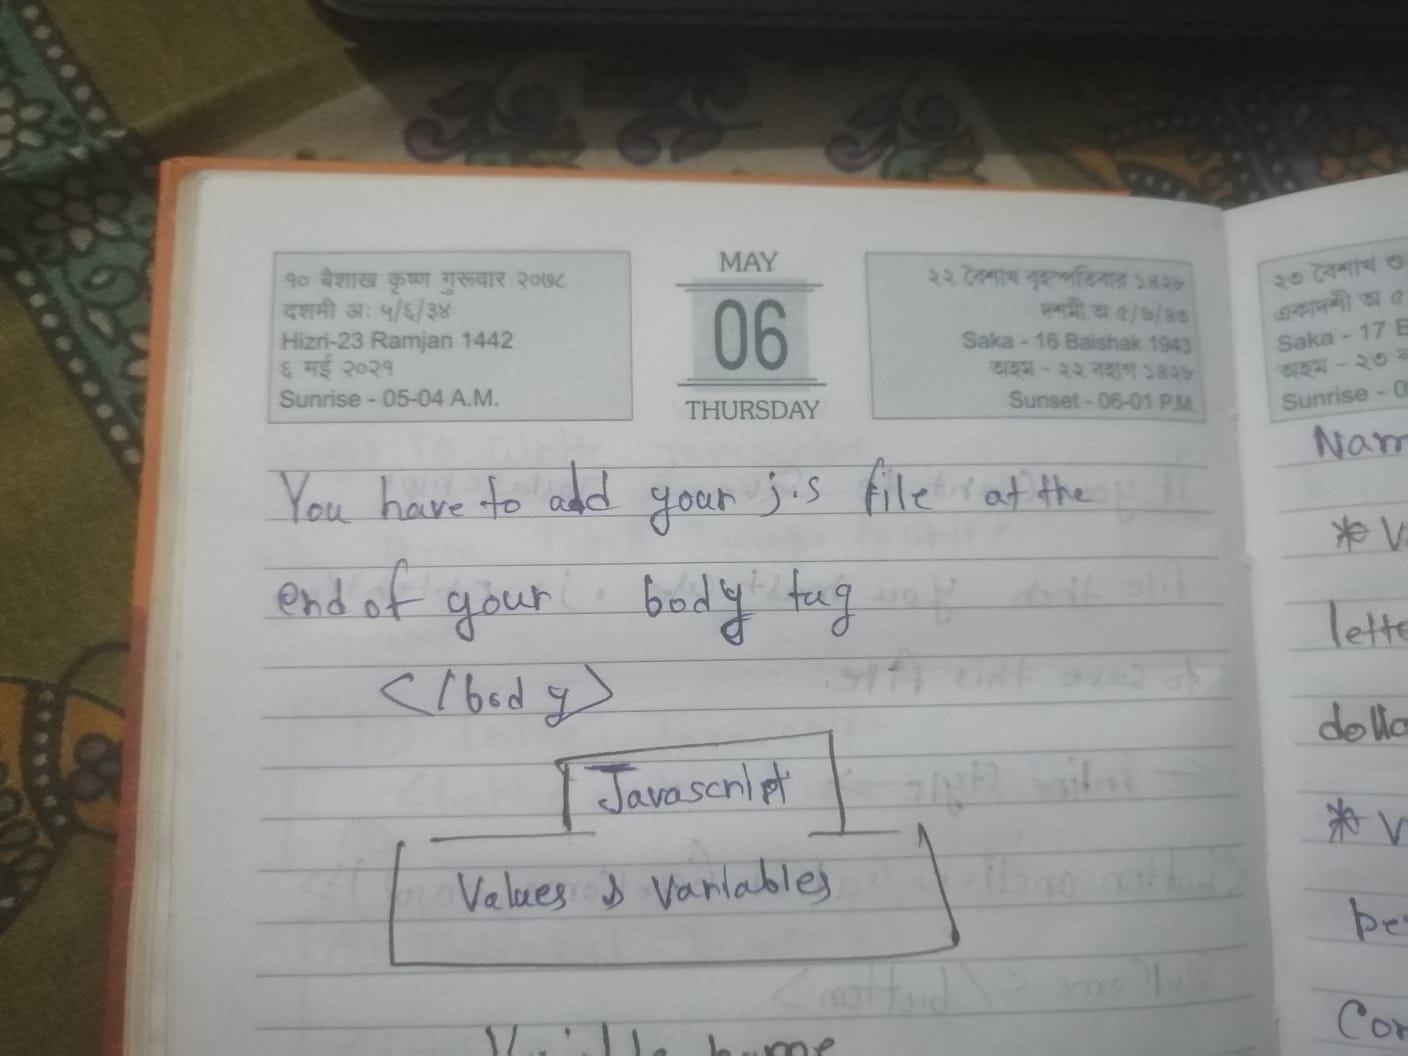 १० बैशाख कृष्ण गुरूवार २०७८
दशमी अः ५/६/३४
Hizri-23 Ramjan 1442
६ मई २०२१
Sunrise - 05-04 A.M.
MAY
06
THURSDAY
২২ বৈশাখ বৃহস্পতিবার ১৪২৮
দশমী অ ৫/৬/৪৩
Saka - 16 Baishak 1943
অহম - ২২ বহাগ ১৪২৮
Sunset - 06-01 P.M.
You have to add your j.s file at the
end of your body tag
</body>
Javascript
Values & variables
২৩ বৈশাখ
একাদশী অ
Saka - 17
অহম - ২৩
Sunrise -
* V
lette
dolla
* V
be
Con